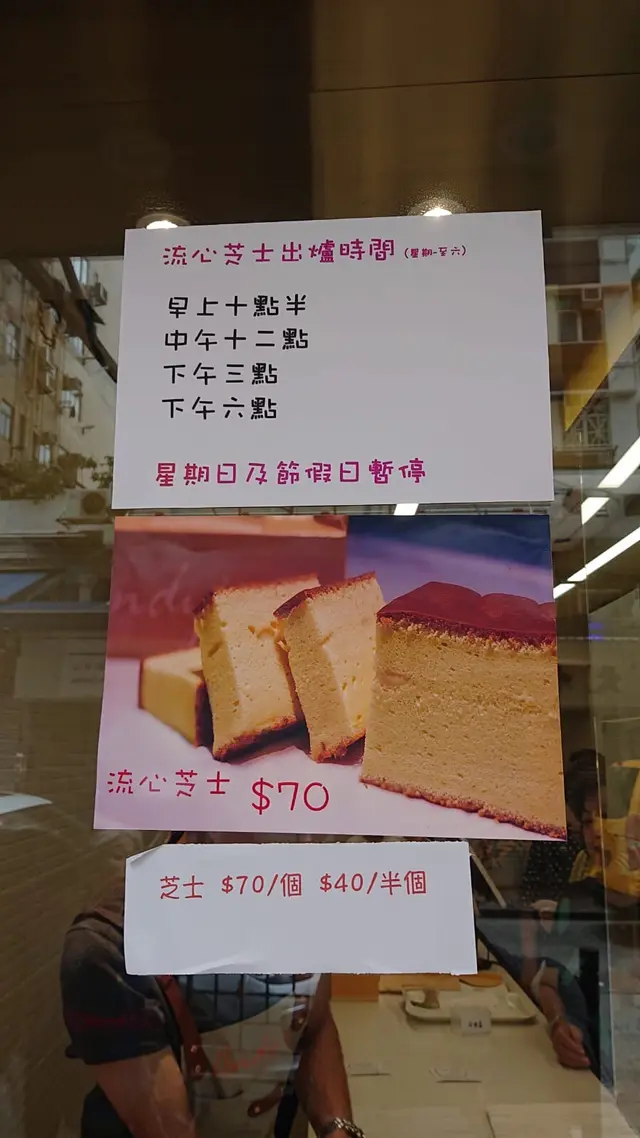 流心芝士出爐時間 (星期一至六)
早上十點半
中午十二點
下午三點
下午六點
星期日及節假日暫停
流心芝士 $70
芝士 $70/個 $40/半個